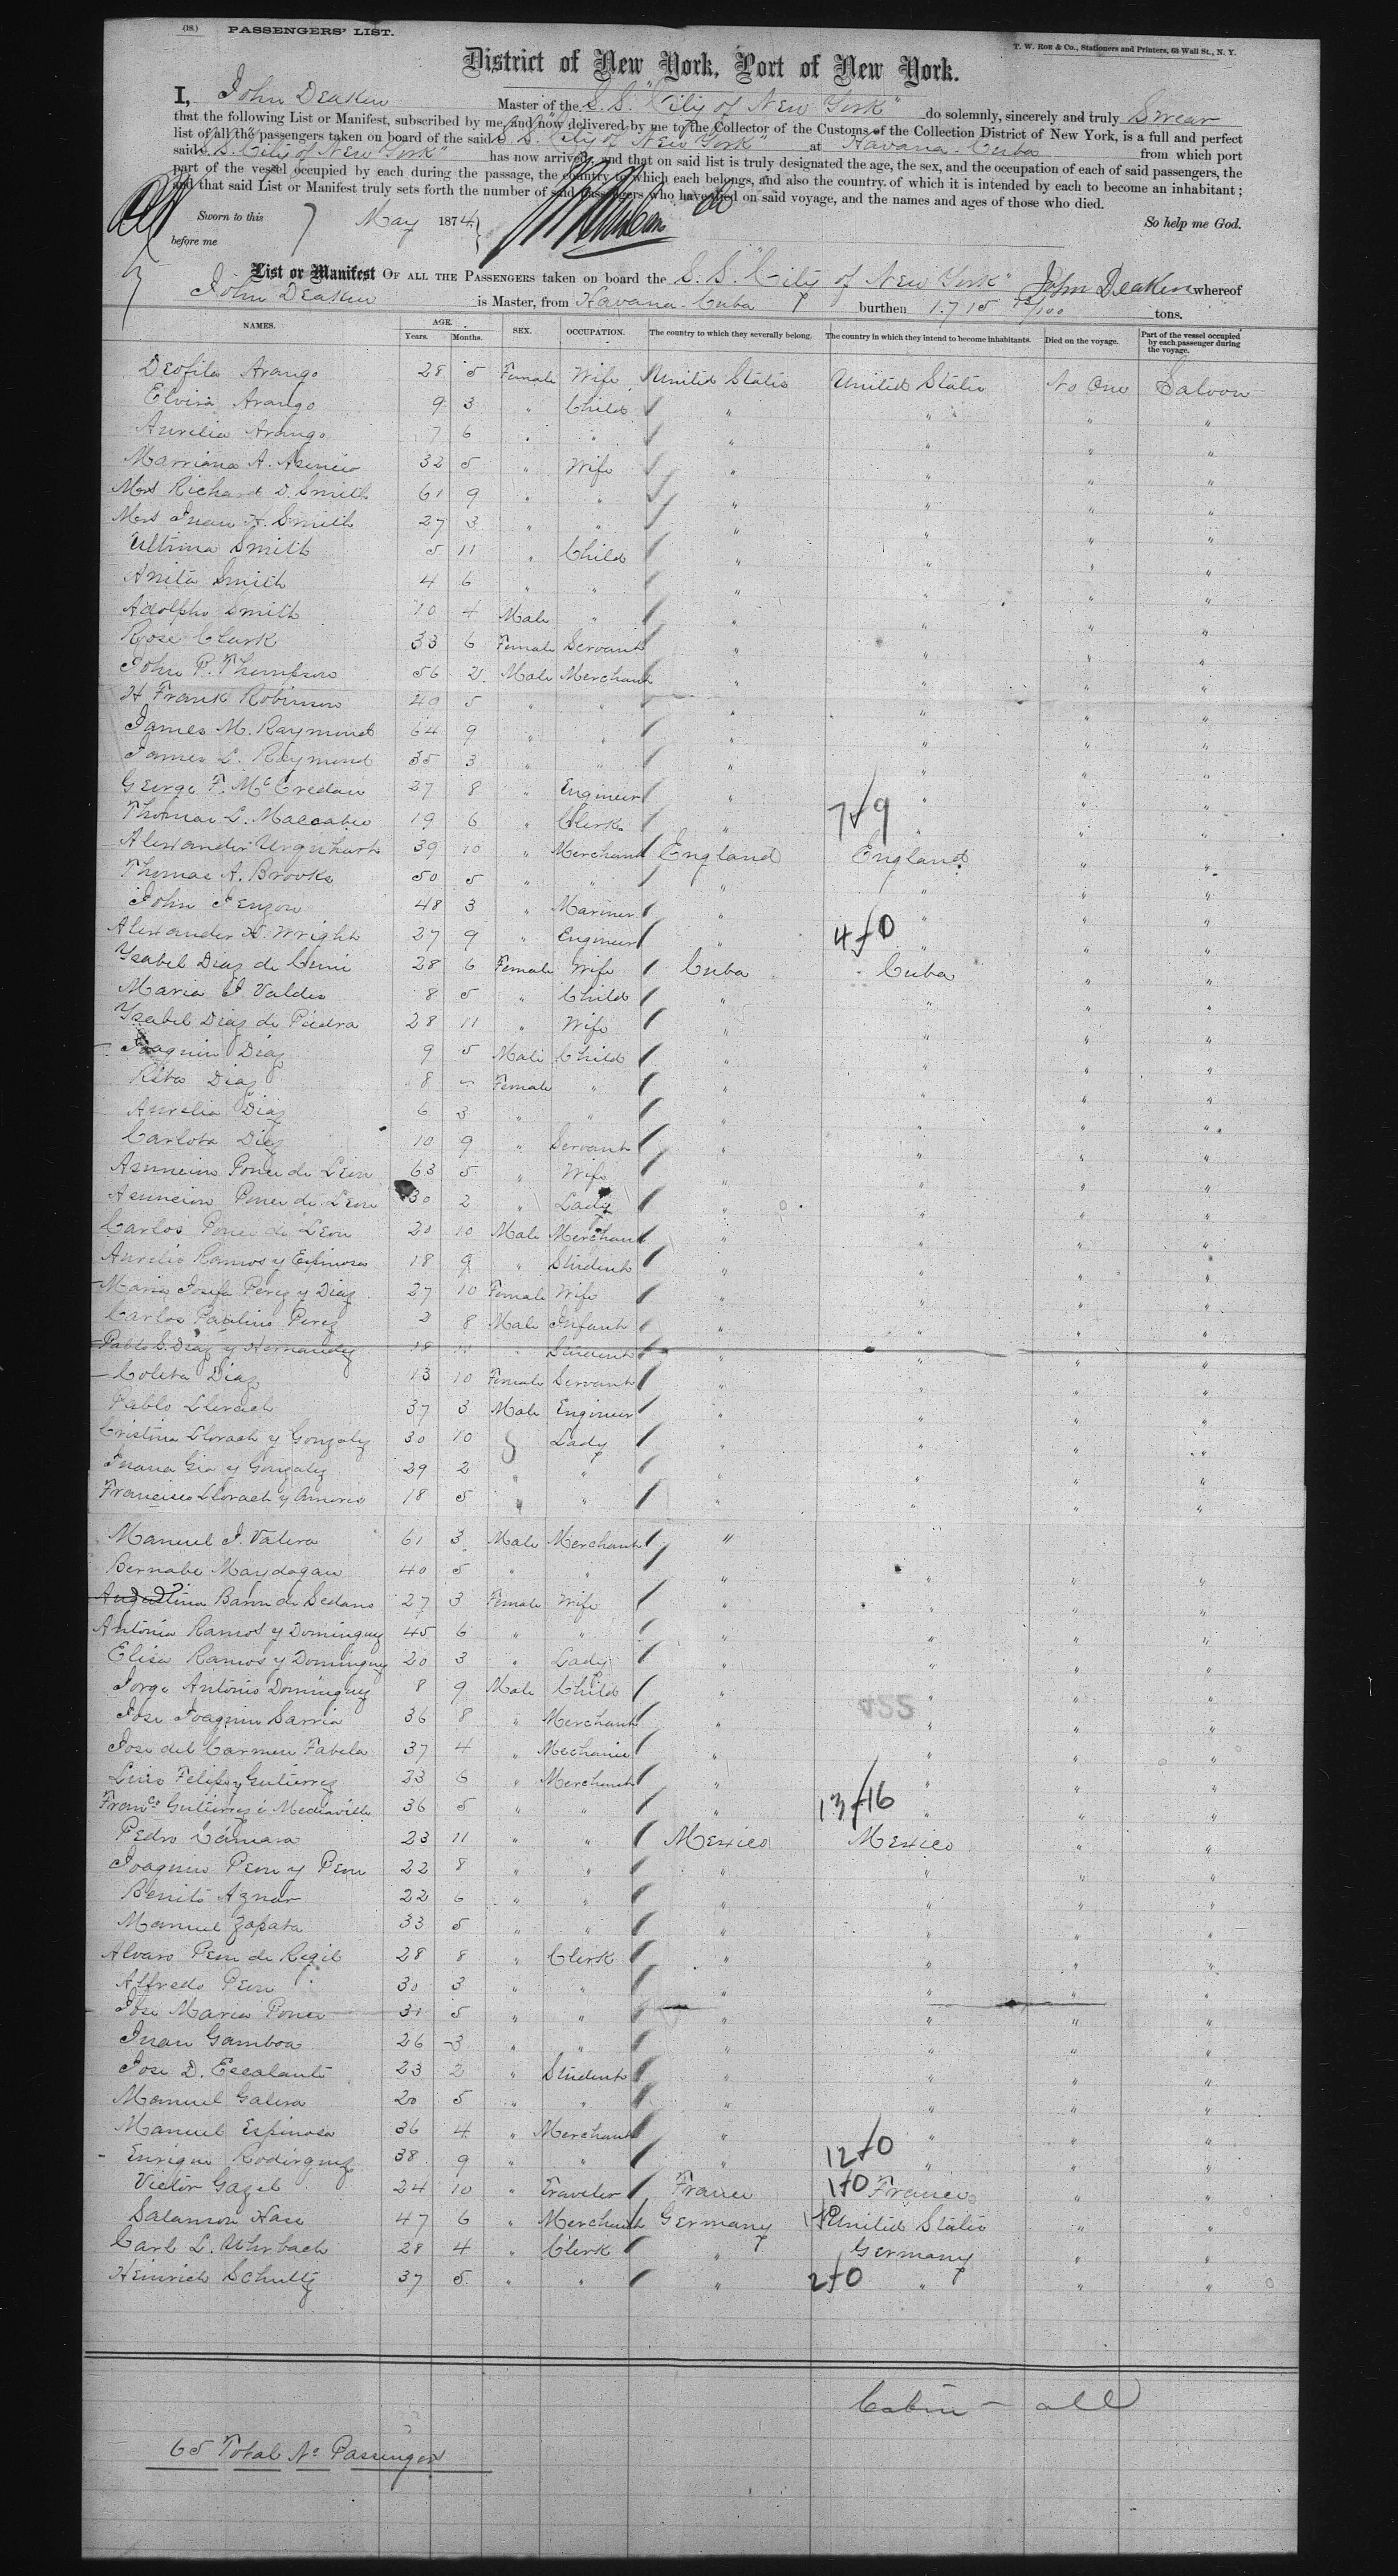 (18.) PASSENGERS' LIST.
T. W. ROE & Co., Stationers and Printers, 63 Wall St., N. Y.
District of New York, Port of New York.
I, John Deaken Master of the S.S. "City of New York" do solemnly, sincerely and truly Swear
that the following List or Manifest, subscribed by me, and now delivered by me to the Collector of the Customs of the Collection District of New York, is a full and perfect
list of all the passengers taken on board of the said S.S. "City of New York" at Havana-Cuba from which port
said S.S. "City of New York" has now arrived, and that on said list is truly designated the age, the sex, and the occupation of each of said passengers, the
part of the vessel occupied by each during the passage, the country to which each belongs, and also the country of which it is intended by each to become an inhabitant;
and that said List or Manifest truly sets forth the number of said passengers who have died on said voyage, and the names and ages of those who died.
Sworn to this 7 May 1874 So help me God.
before me
List or Manifest OF ALL THE PASSENGERS taken on board the S.S. "City of New York" John Deaken whereof
John Deaken is Master, from Havana-Cuba burthen 1715 tons.
NAMES. AGE. Years. Months. SEX. OCCUPATION. The country to which they severally belong. The country in which they intend to become inhabitants. Died on the voyage. Part of the vessel occupied by each passenger during the voyage.
Deofila Arango 28 5 Female Wife United States United States No One Saloon
Elvira Arango 9 3 " Child " " " "
Aurelia Arango 7 6 " " " " " "
Marriana A. Asencio 32 5 " Wife " " " "
Mrs Richard D. Smith 61 9 " " " " " "
Mrs Juan H. Smith 27 3 " " " " " "
Ultima Smith 5 11 " Child " " " "
Anita Smith 4 6 " " " " " "
Adolpho Smith 10 4 Male " " " " "
Rose Clark 33 6 Female Servant " " " "
John P. Thompson 56 2 Male Merchant " " " "
H Frank Robinson 40 5 " " " " " "
James M. Raymond 64 9 " " " " " "
James L. Raymond 35 3 " " " " " "
George F. McCredan 27 8 " Engineer " " " "
Thomas L. Maccabee 19 6 " Clerk " 7 9 " " "
Alexander Urquhart 39 10 " Merchant England England " "
Thomas A. Brooks 50 5 " " " " " "
John Fenzow 48 3 " Mariner " " " "
Alexander H. Wright 27 9 " Engineer " 4 0 " " "
Ysabel Diaz de Cuni 28 6 Female Wife Cuba Cuba " "
Maria J. Valdes 8 5 " Child " " " "
Ysabel Diaz de Piedra 28 11 " Wife " " " "
Joaquin Diaz 9 5 Male Child " " " "
Rita Diaz 8 - Female " " " " "
Aurelia Diaz 6 3 " " " " " "
Carlota Diez 10 9 " Servant " " " "
Asuncion Ponce de Leon 63 5 " Wife " " " "
Asuncion Ponce de Leon 30 2 " Lady " " " "
Carlos Ponce de Leon 20 10 Male Merchant " " " "
Aurelio Ramos y Espinosa 18 9 " Student " " " "
Maria Josefa Perez y Diaz 27 10 Female Wife " " " "
Carlos Paulino Perez 3 8 Male Infant " " " "
Pablo S. Diaz y Hernandez 18 11 " Student " " " "
Coleta Diaz 13 10 Female Servant " " " "
Pablo Llorach 37 3 Male Engineer " " " "
Cristina Llorach y Gonzalez 30 10 Lady " " " "
Juana Gia y Gonzalez 29 2 " " " " " "
Francisco Llorach y Amoris 18 5 " " " " " "
Manuel J. Valera 61 3 Male Merchant "
Bernabe Maydagan 40 5 " " " " " "
Augustina Baron de Sedano 27 3 Female Wife " " " "
Antonia Ramos y Dominguez 45 6 " " " " " "
Elisa Ramos y Dominguez 20 3 " Lady " " " "
Jorge Antonio Dominguez 8 9 Male Child " " " "
Jose Joaquin Sarria 36 8 " Merchant " " " "
Jose del Carmen Fabela 37 4 " Mechanic " " " "
Luis Felipe y Gutierrez 33 6 " Merchant " " " "
Franco Gutierrez é Mediavilla 36 5 " " " 13 16 " " "
Pedro Cámara 23 11 " " Mexico Mexico " "
Joaquin Peon y Peon 22 8 " " " " " "
Benito Aznar 22 6 " " " " " "
Manuel Zapata 33 5 " " " " " "
Alvaro Peon de Regil 28 8 " Clerk " " " "
Alfredo Peon 30 3 " " " " " "
Jose Maria Ponce 31 5 " " " " " "
Juan Gamboa 26 3 " " " " " "
Jose D. Escalante 23 2 " Student " " " "
Manuel Galera 20 5 " " " " " "
Manuel Espinosa 36 4 " Merchant " " " "
Enrique Rodriguez 38 9 " " " 12 0 " " "
Victor Gazel 24 10 " Traveler France 1 0 France " "
Salamon Hass 47 6 " Merchant Germany United States " "
Carl L. Uhrbach 28 4 " Clerk " Germany " "
Heinrich Schultz 37 5 " " " 2 0 " " "
Cabin - all
65 Total No Passengers